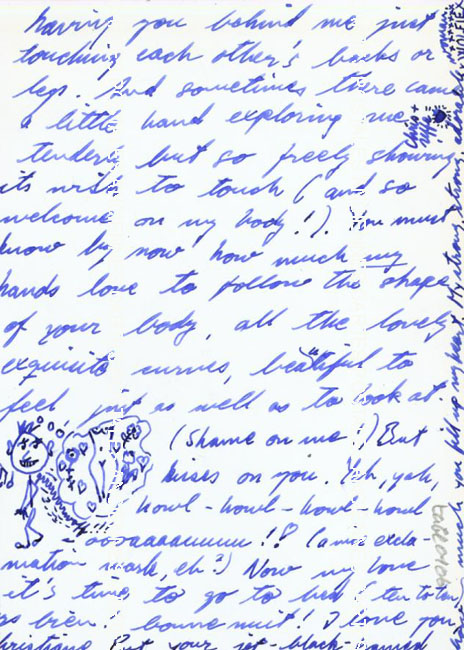 having you behind me just
touching each other's backs or
legs. And sometimes there came
a little hand exploring me
tender but so freely showing
its wish to touch (and so
welcome on my body!). You must
know by now how much my
hands love to follow the shape
of your body, all the lovely
exquisite curves, beautiful to
feel just as well as to look at.
(Shame on me!) But
kisses on you. Yeh, yeh,
howl-howl-howl-howl
ooaaaaauuuu!!
mation mark, eh?) Now my love
it's time to go to bed
bonne nuit! I love you
Christiane But your jet-black
much you fill up my heart. My strong,